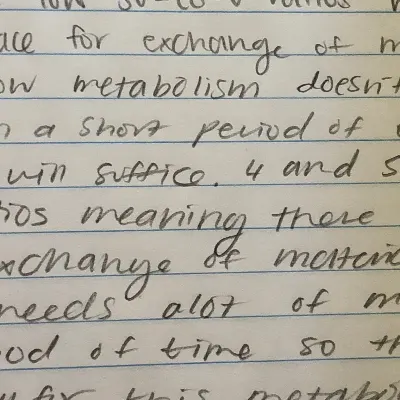 ace for exchange of m
ow metabolism doesn't
n a short period of
will suffice. 4 and 5
ios meaning there
xchange of materia
needs alot of m
od of time so th
for this metabo